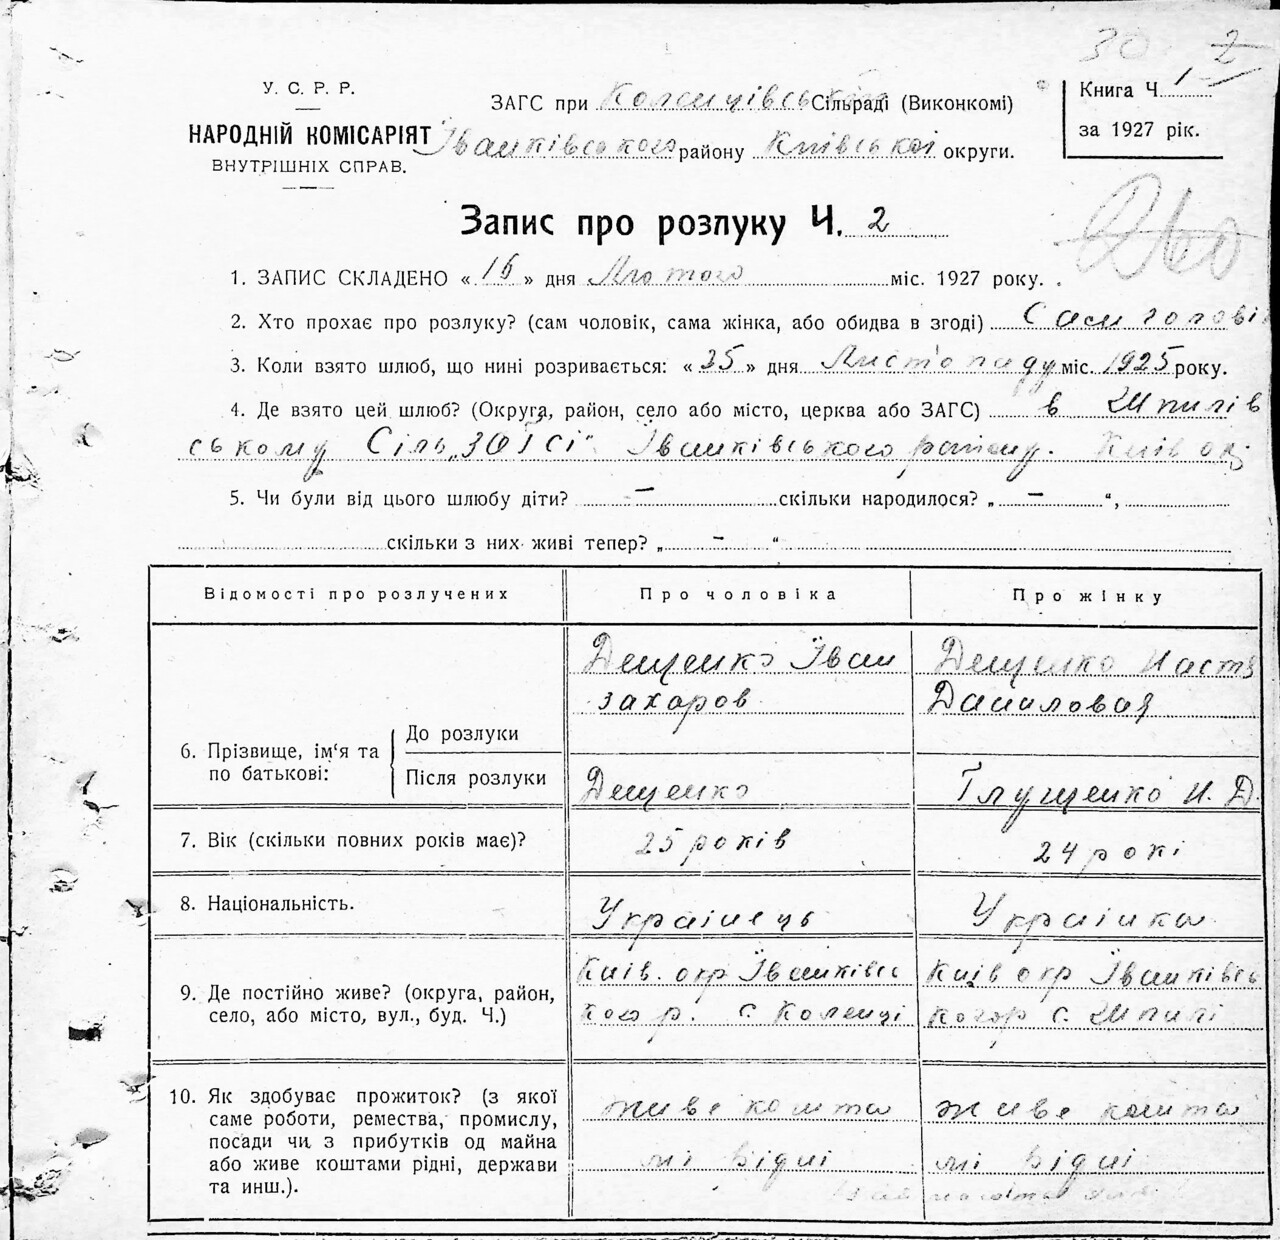 30 2
У. С. Р. Р.
НАРОДНІЙ КОМІСАРІЯТ
ВНУТРІШНІХ СПРАВ.
ЗАГС при Коленцівській Сільраді (Виконкомі)
Іванківського району Київської округи.
Книга Ч. 1
за 1927 рік.
Запис про розлуку Ч. 2
1. ЗАПИС СКЛАДЕНО «16» дня Лютого міс. 1927 року.
2. Хто прохає про розлуку? (сам чоловік, сама жінка, або обидва в згоді) Сам чолові
3. Коли взято шлюб, що нині розривається: «25» дня Листопаду міс. 1925 року.
4. Де взято цей шлюб? (Округа, район, село або місто, церква або ЗАГС) в Шпилів
ському Сіль„ЗАГСі" Іванківського району. Київ окр
5. Чи були від цього шлюбу діти? — скільки народилося? „ — “,
скільки з них живі тепер? „ — “
Відомості про розлучених Про чоловіка Про жінку
Дещенко Іван Дещенко Настя
захаров Даниловая
6. Прізвище, ім‘я та по батькові: До розлуки
Після розлуки Дещенко Глущенко Н. Д.
7. Вік (скільки повних років має)? 25 років 24 рокі
8. Національність. Украінець Украінка
9. Де постійно живе? (округа, район, село, або місто, вул., буд. Ч.)
Київ. окр Іванківсь Київ окр Іванківсь
кого р. с. Коленці когор с. Шпилі
10. Як здобуває прожиток? (з якої
саме роботи, ремества, промислу,
посади чи з прибутків од майна
або живе коштами рідні, держави
та инш.).
живе кошта живе кошта
мі рідні мі рідні